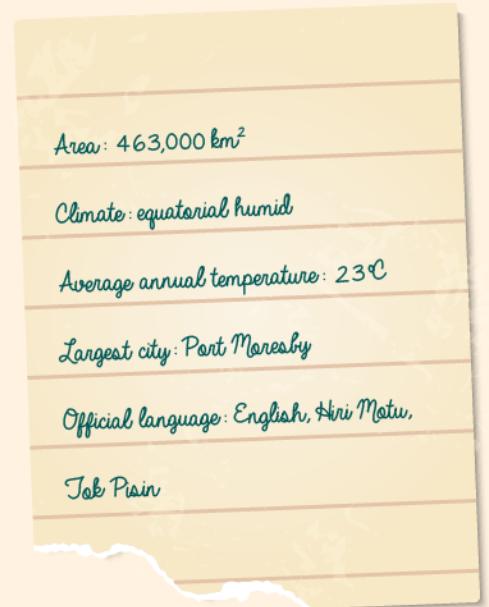 Area: 463,000 km²
Climate: equatorial humid
Average annual temperature: 23°C
Largest city: Port Moresby
Official language: English, Hiri Motu,
Tok Pisin